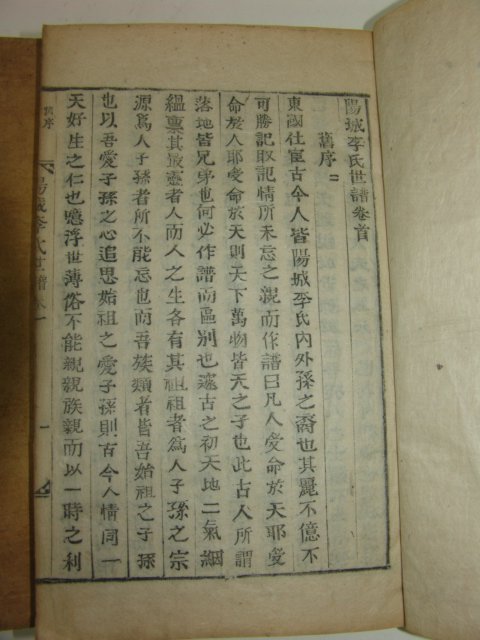 陽城李氏世譜卷首
舊序
東國仕宦古今人皆陽城李氏內外孫之裔也其麗不億不
可勝記取記情所未忘之親而作譜曰凡人受命於天耶受
命於人耶受命於天則天下萬物皆天之子也此古人所謂
落地皆兄弟也何必作譜而區別也邃古之初天地二氣絪
縕稟其最靈者人而人之生各有其祖祖者爲人子孫之宗
源爲人子孫者所不能忘也而吾族類者皆吾始祖之子孫
也以吾愛子孫之心追思始祖之愛子孫則古今人情同一
天好生之仁也噫浮世薄俗不能親親族親而以一時之利
舊序
陽城李氏世譜
一